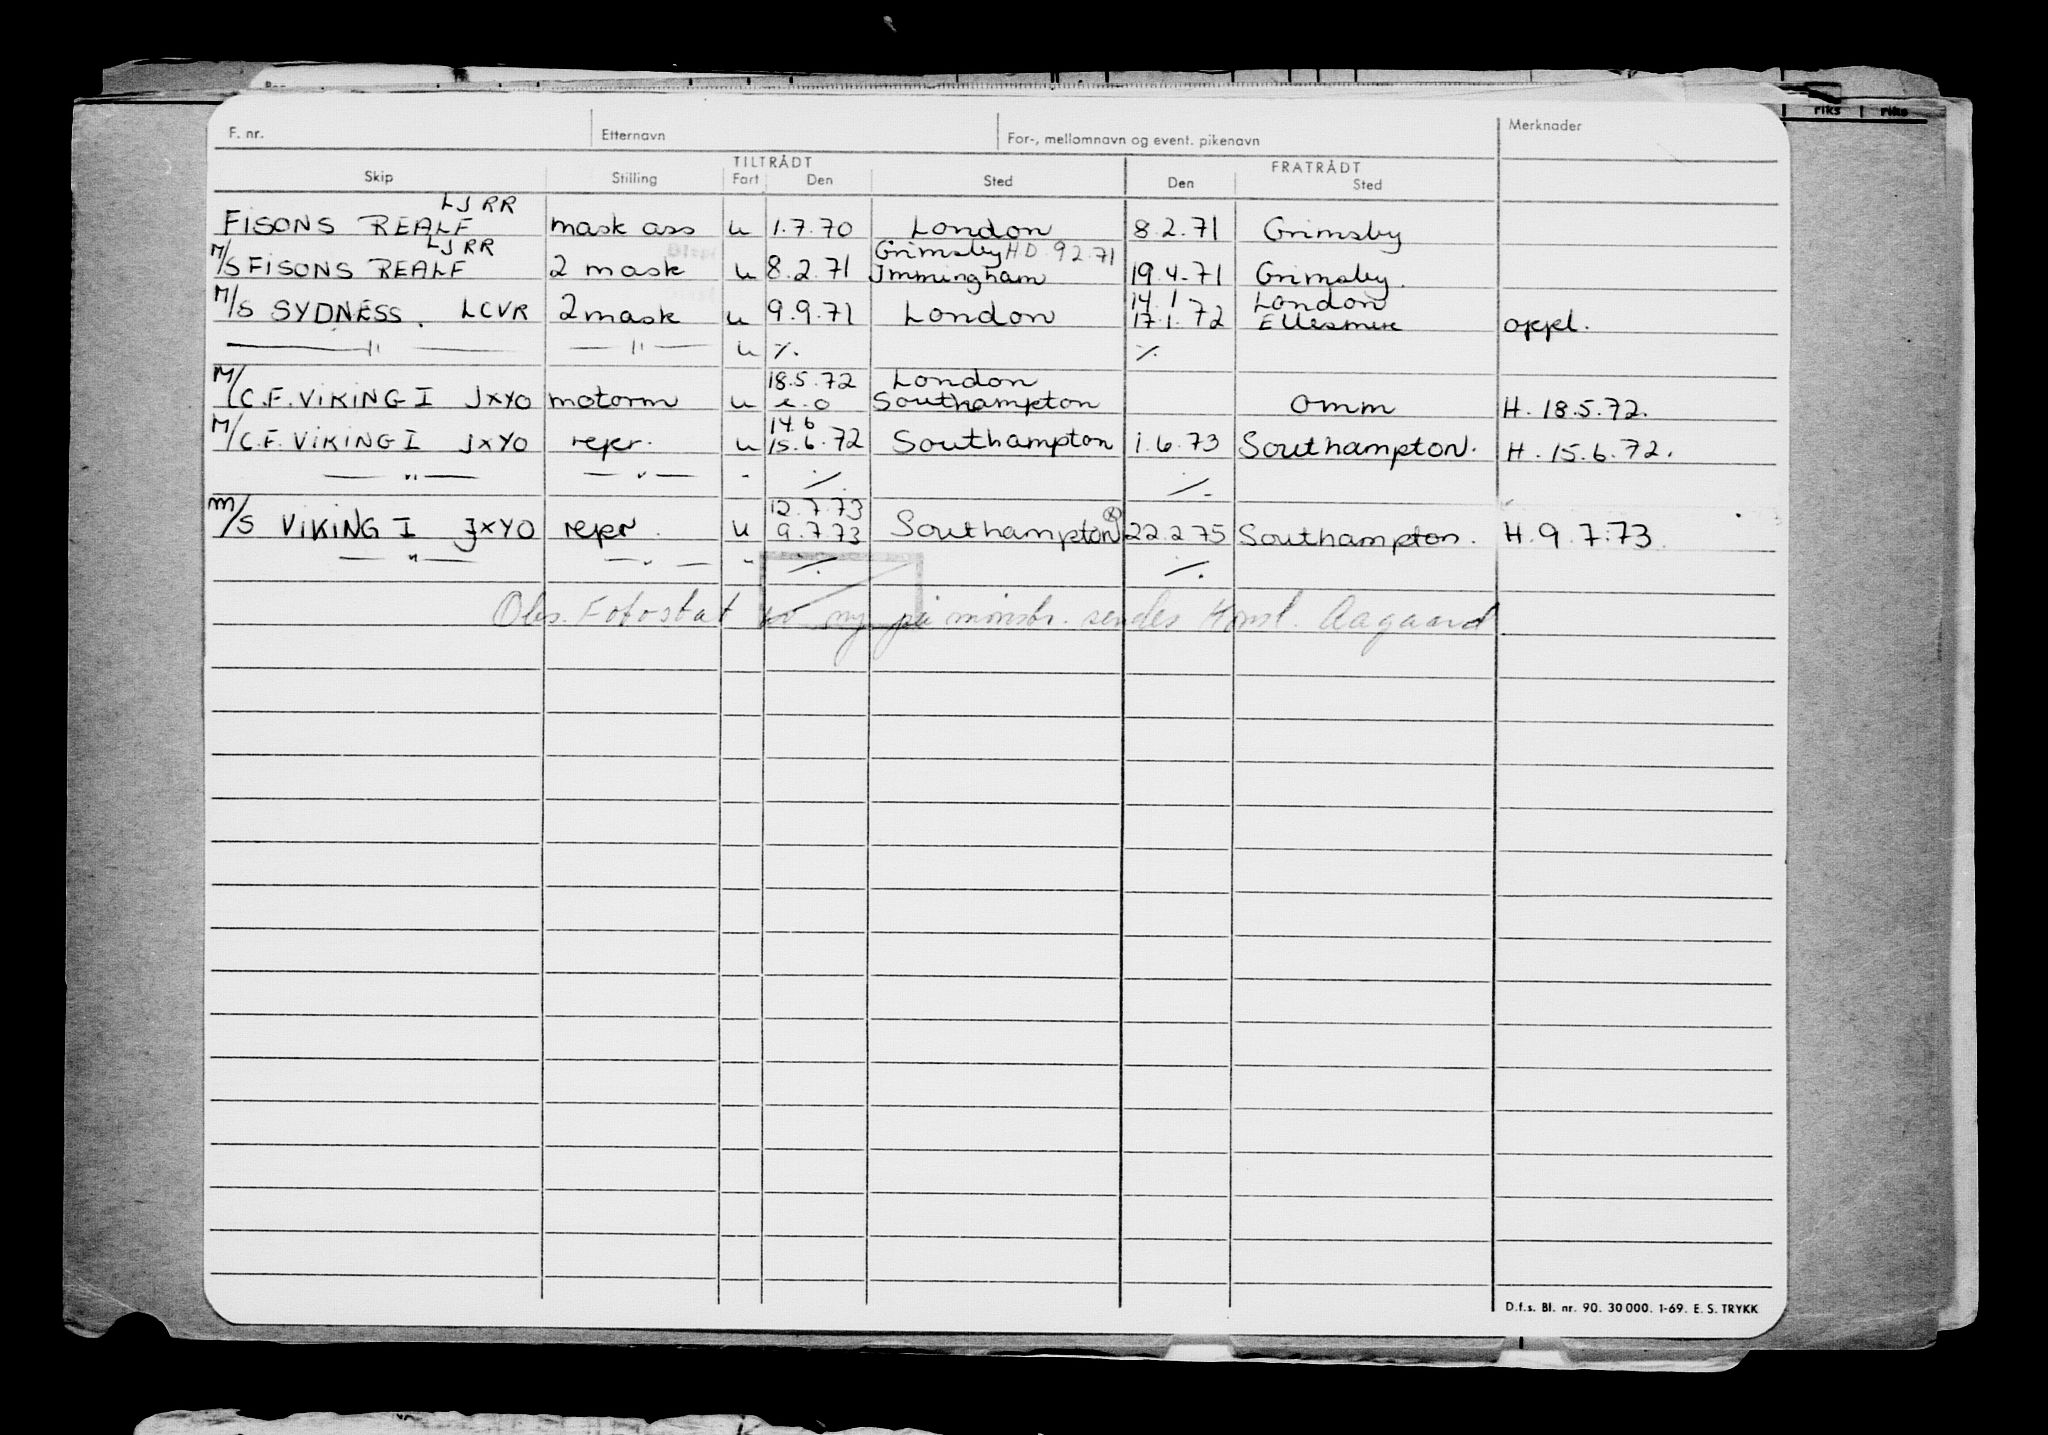 F. nr. Etternavn For-, mellomnavn og event. pikenavn Merknader
TILTRÅDT FRATRÅDT
Skip Stilling Fart Den Sted Den Sted
riks riks
LJRR
FISONS REALF mask ass u 1.7.70 London 8.2.71 Grimsby
LJRR Grimsby H.D. 9 2.71
M/S FISONS REALF 2 mask u 8.2.71 Immingham 19.4.71 Grimsby.
14.1 London
M/S SYDNESS. LCVR 2 mask u 9.9.71 London 17.1.72 Ellesmere oppl.
—— " —— — " — u ./. ./.
18.5.72 London
M/C.F. VIKING I JXYO motorm u e.o Southampton omm H. 18.5.72.
14.6
M/C.F. VIKING I JXYO repr. u 15.6.72 Southampton 1.6.73 Southampton. H. 15.6.72.
— " — — " — - ./. ./.
12.7.73
M/S VIKING I JXYO repr. u 9.7.73 Southampton (x) 22.2.75 Southampton. H. 9.7.73.
— " — — " — " ./. ./.
Obs. Fotostat av ny på mønstr. sendes Aagaard
D.f.s. Bl. nr. 90. 30 000. 1-69. E. S. TRYKK